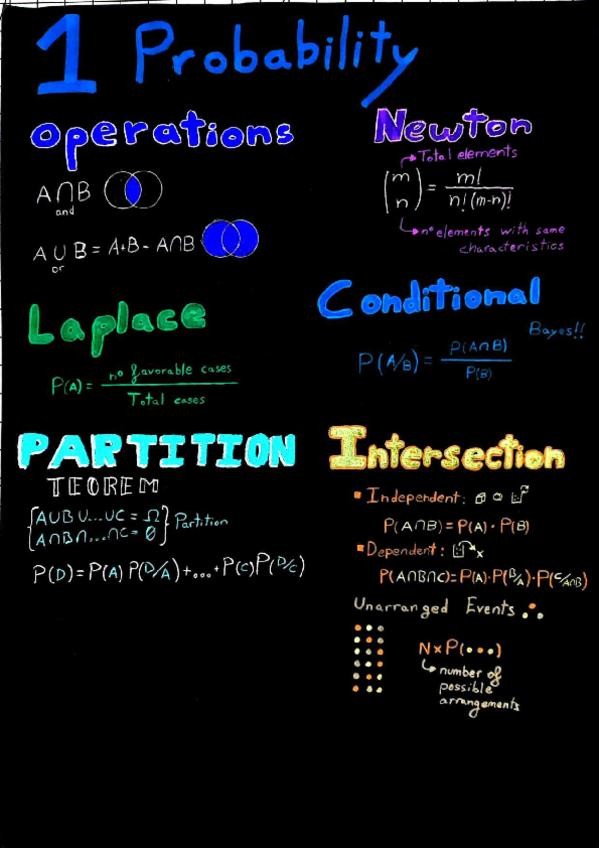 1 Probability
operations
A∩B
and
A ∪ B = A+B - A∩B
or
Newton
Total elements
(m n) = m! / n!(m-n)!
nº elements with same
characteristics
Laplace
P(A) = nº favorable cases / Total cases
Conditional
Bayes!!
P(A/B) = P(A∩B) / P(B)
PARTITION
TEOREM
{A∪B∪...∪C = Ω
A∩B∩...∩C = Ø} Partition
P(D) = P(A) P(D/A) +...+ P(C) P(D/C)
Intersection
▪ Independent:
P(A∩B) = P(A) · P(B)
▪ Dependent:
P(A∩B∩C) = P(A) · P(B/A) · P(C/A∩B)
Unarranged Events
N x P(•••)
number of
possible
arrangements